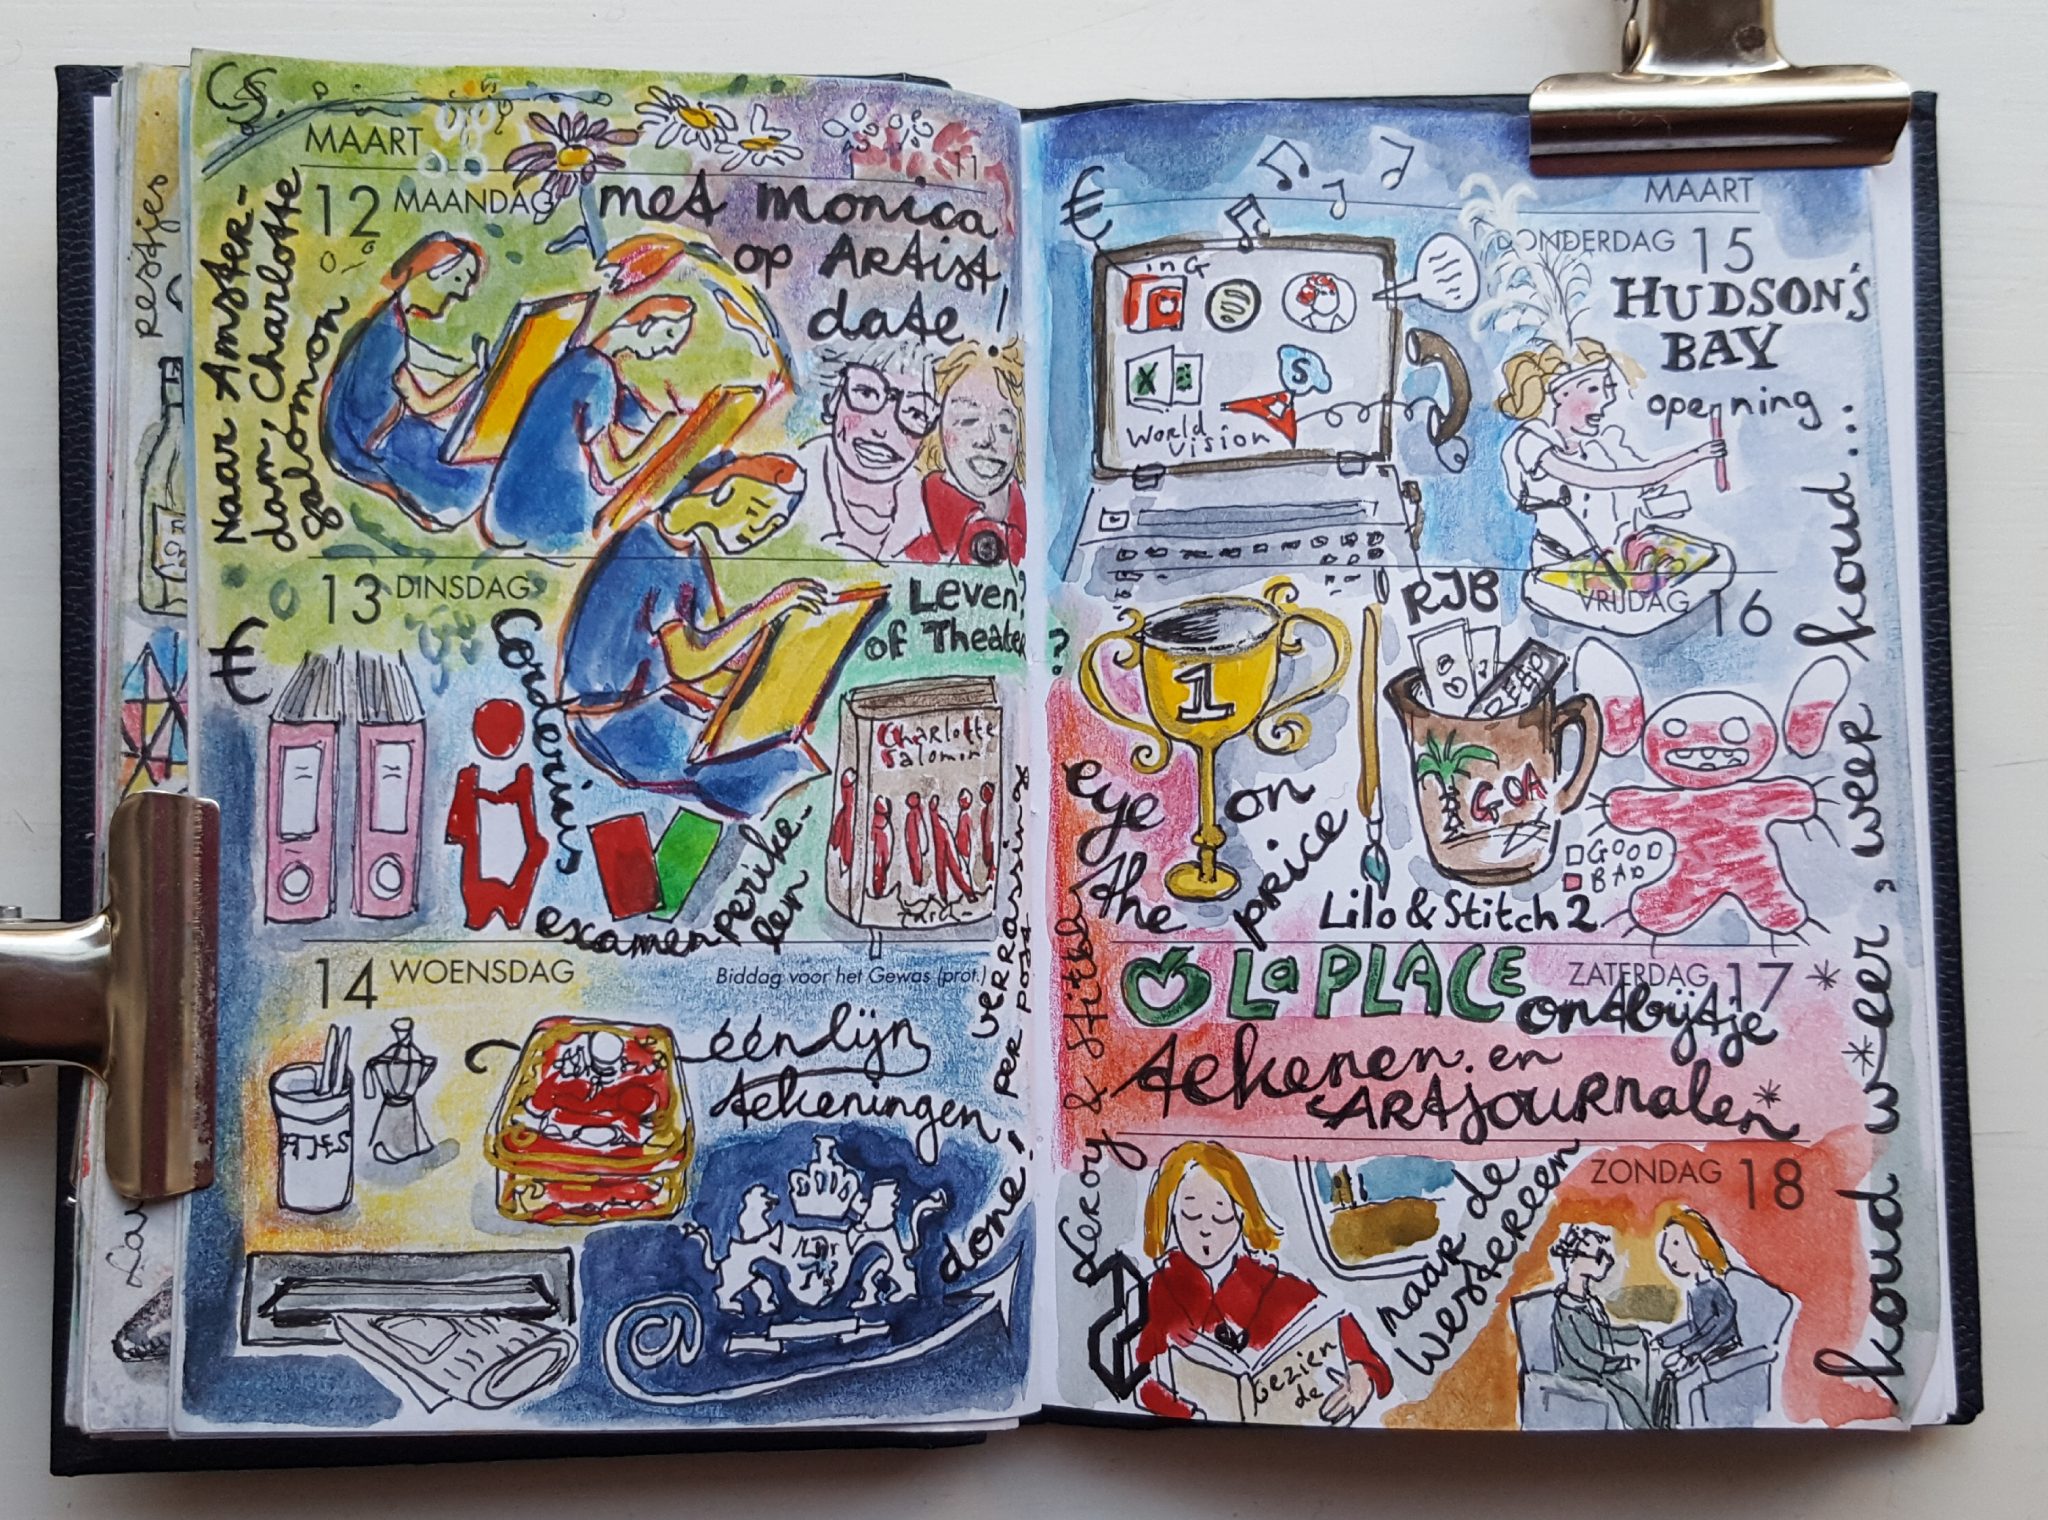 restjes
MAART
11
12 MAANDAG
Naar Amster-
dam, Charlotte
Salomon
met Monica
op Artist
date!
13 DINSDAG
€
Corderius
examen perike-
len
Leven?
of Theater?
Charlotte
Salomon
14 WOENSDAG
Biddag voor het Gewas (prot.)
verrassing
per post
éénlijn
tekeningen
done!
@
MAART
DONDERDAG 15
€
ING
X
S
World
Vision
HUDSON'S
BAY
opening
VRIJDAG 16
1
eye on
the price
RJB
GOA
GOOD
BAD
Lilo & Stitch 2
Leroy & Stitch
ZATERDAG 17
La PLACE
ontbijtje
tekenen en
ARTjournalen
ZONDAG 18
naar de
Westereen
Gezien
de
koud weer, weer koud...